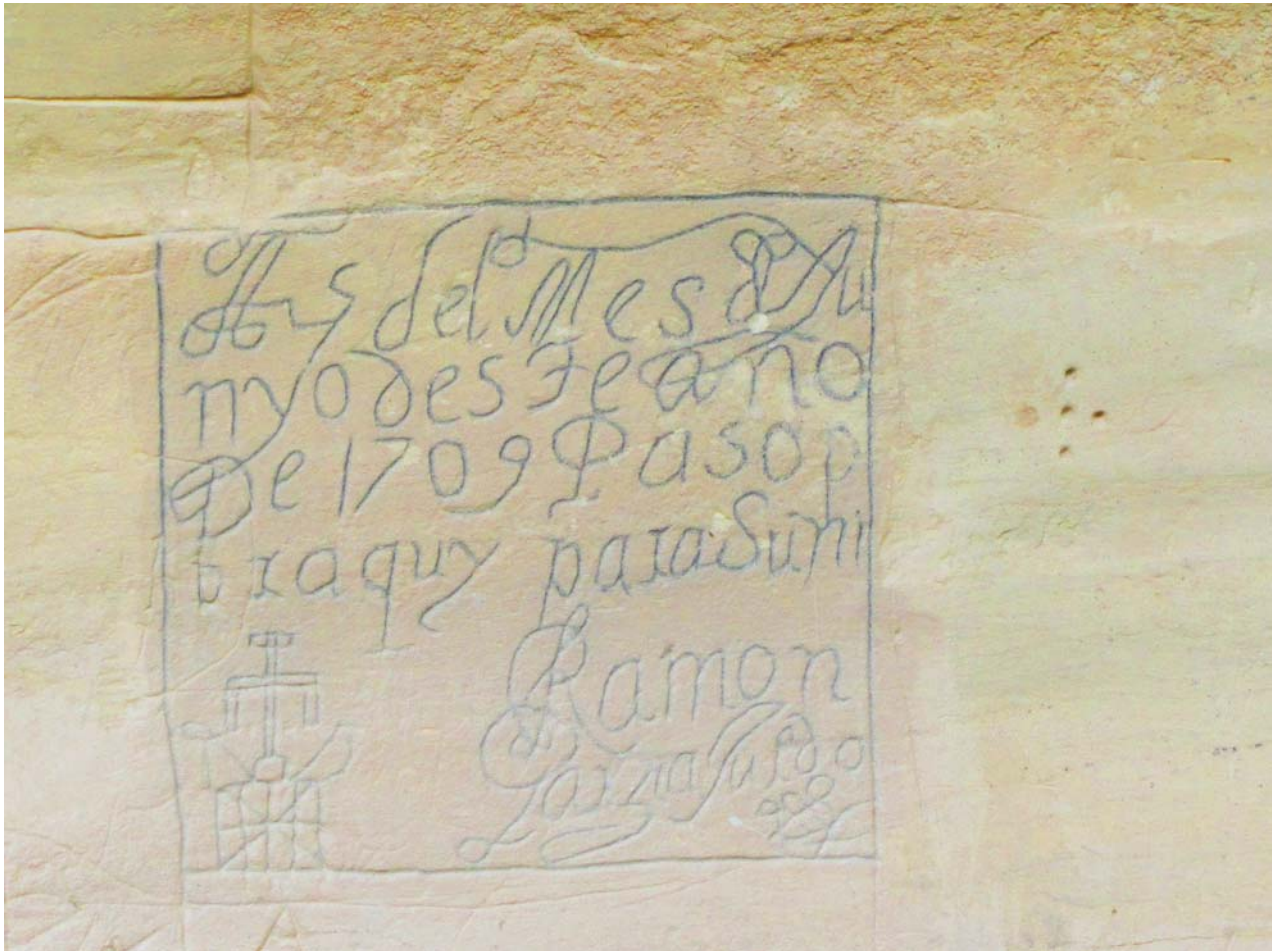 A y 5 del Mes d Ju
nyo deste año
De 1709 Paso p
or aquy para Suñi
Ramon
Garzia Jurdo